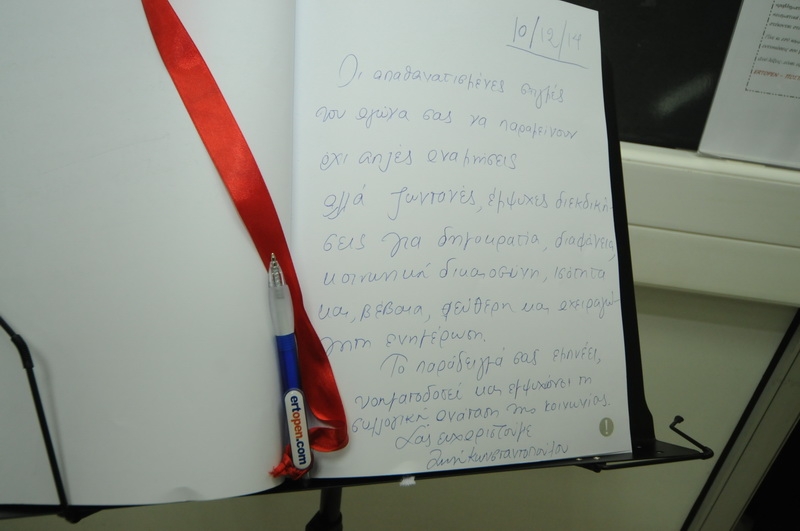 10/12/14
Οι απαθανατισμένες στιγμές
του αγώνα σας να παραμείνουν
όχι απλές αναμνήσεις
αλλά ζωντανές, έμψυχες διεκδική-
σεις για δημοκρατία, διαφάνεια,
κοινωνική δικαιοσύνη, ισότητα
και, βέβαια, ελεύθερη και αχειραγώ-
γητη ενημέρωση.
Το παράδειγμά σας εμπνέει,
νοηματοδοτεί και εμψυχώνει τη
συλλογική ανάταση της κοινωνίας.
Σας ευχαριστούμε
Ζωή Κωνσταντοπούλου
ertopen.com